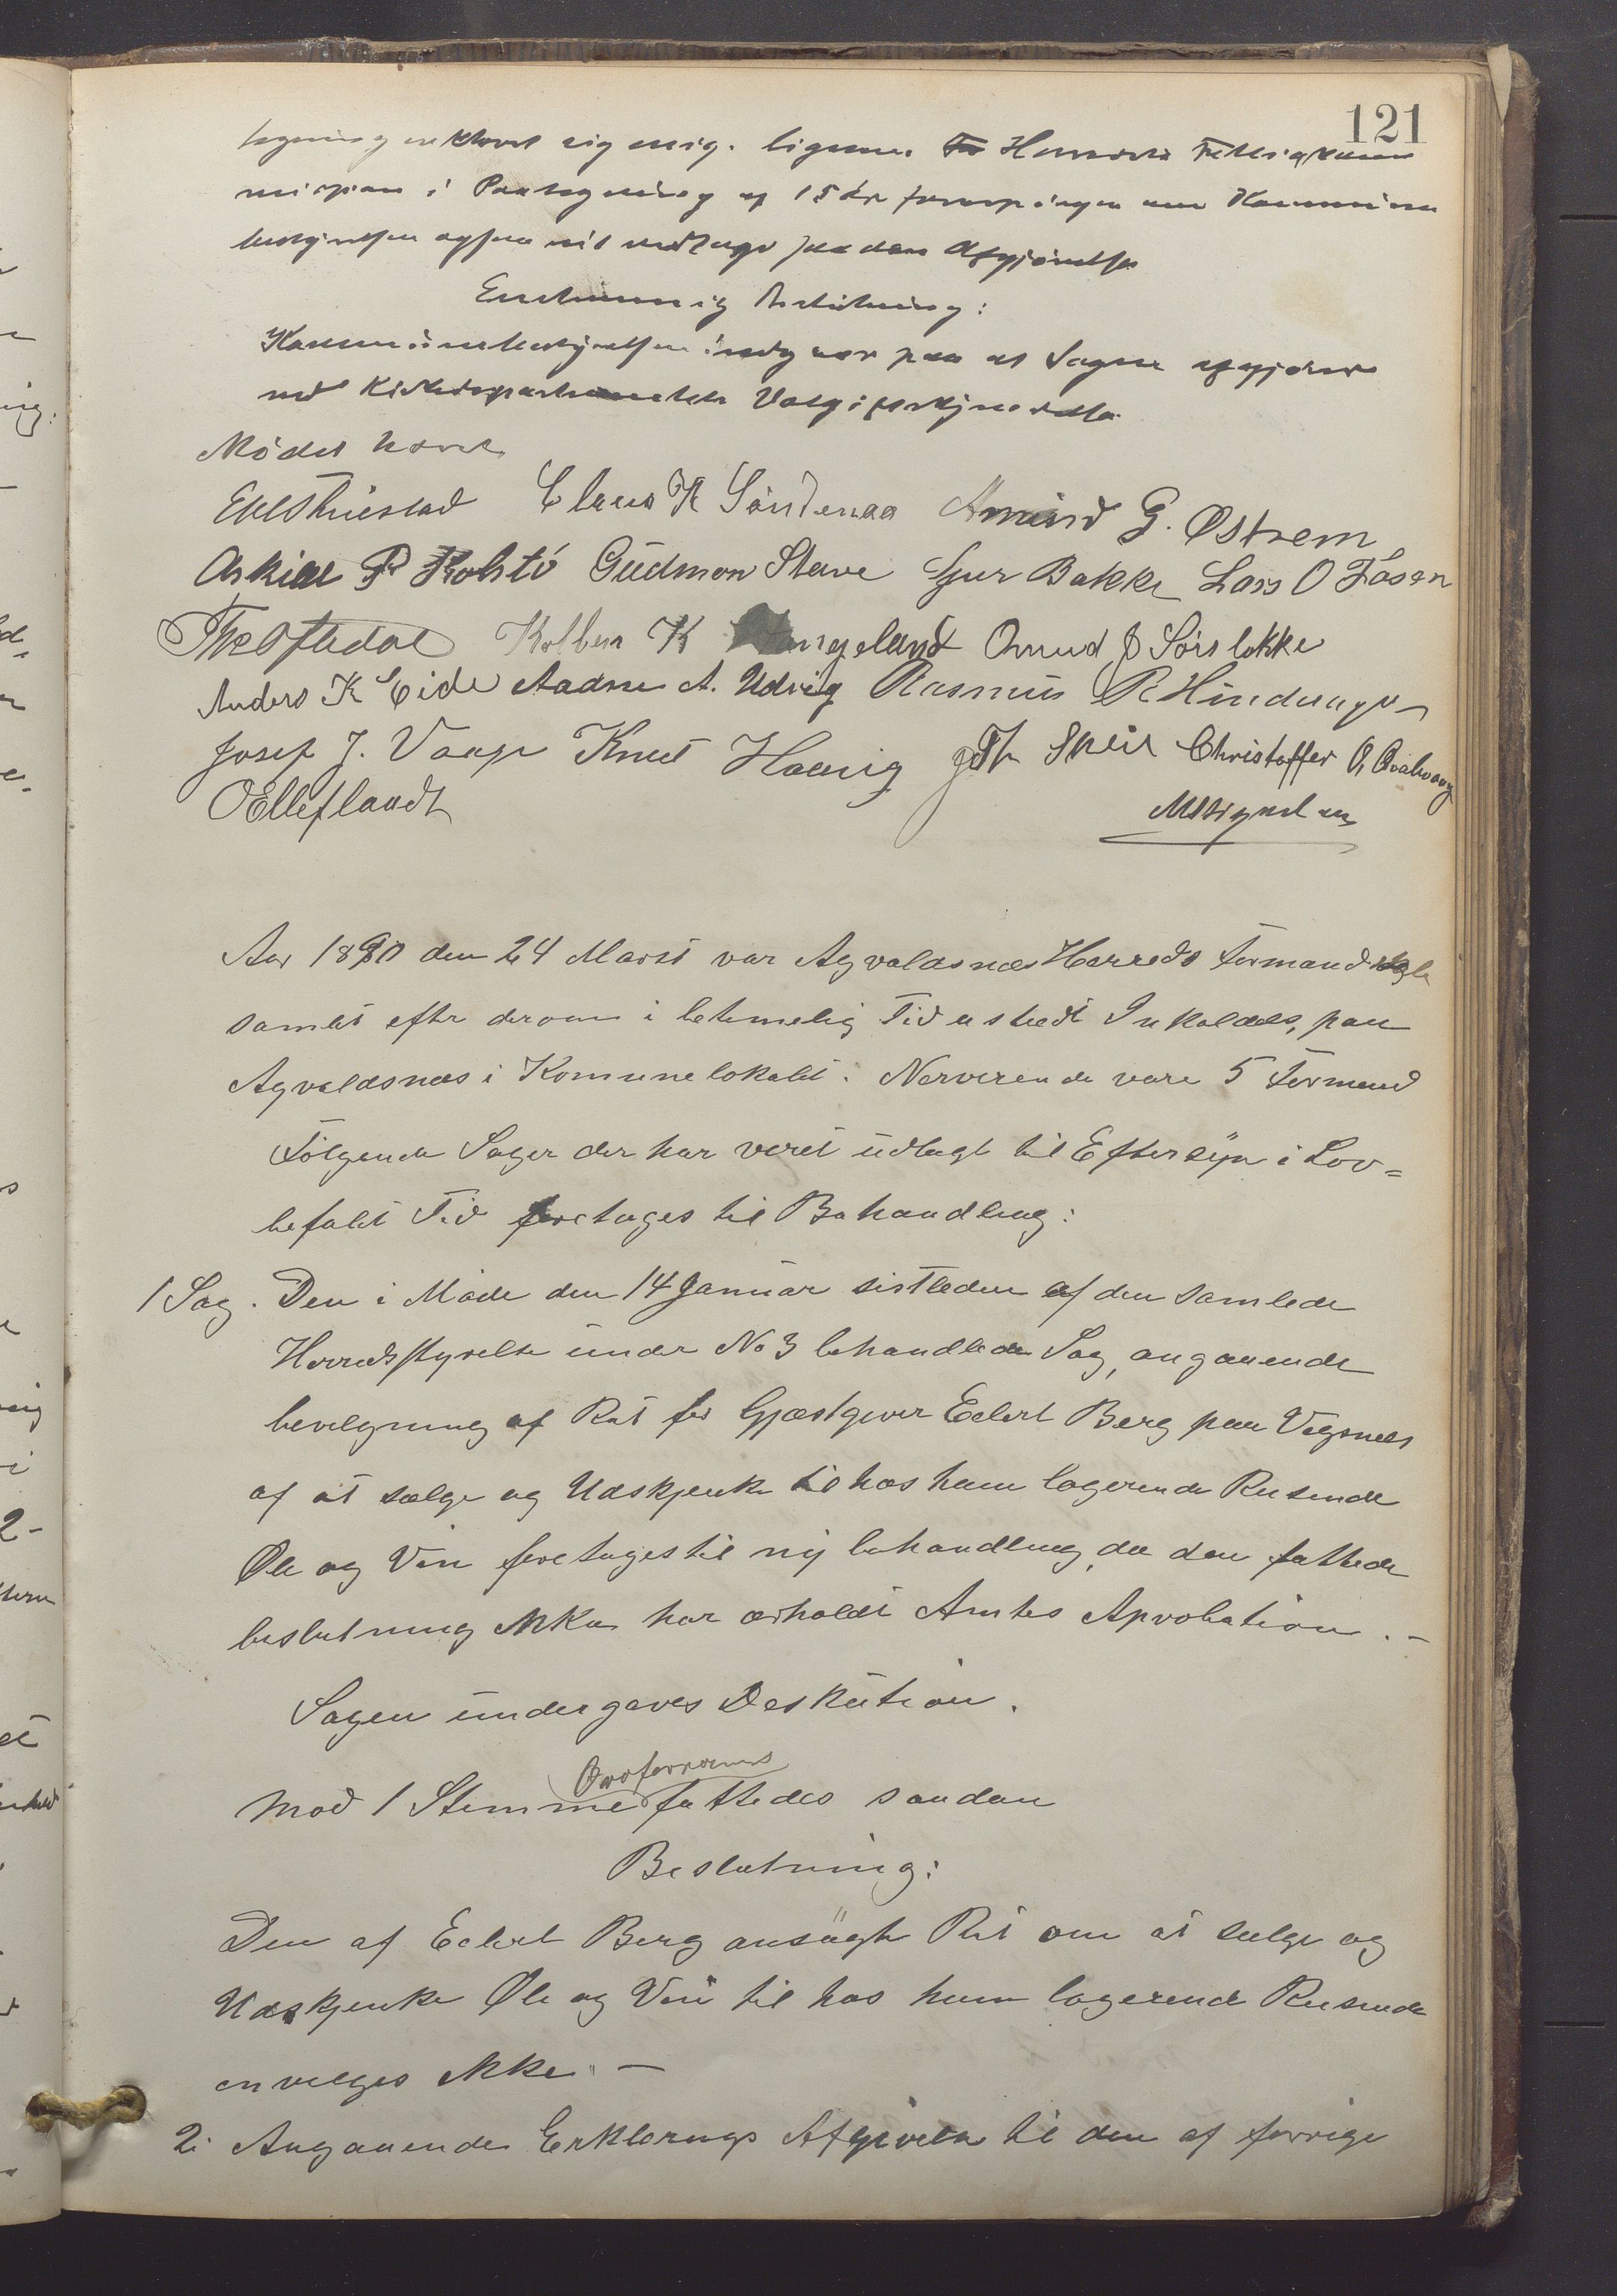 121
sig enig. ligesom Herreds Fattigkom
mission i Paategning af 15 ds
Enstemmig Beslutning:
Kommunebestyrelsen indgaar paa at Sagen afgjøres
ved Kirkedepartementets
Mødet hævet
Claus K Søndenaa Amund G. Østrem
Askild P Kolstö Gudmon Stave Sjur Bakke Lars O Fosen
Kolben K Amund J Sörslokke
Anders K Eide Aadne A. Udvig Rasmus R Hinderager
Josef J. Vaage Knut Hauig Christoffer O, Qvalevaag
OElleflandt
Aar 1890 den 24 Marst var Agvaldsnæs Herreds Formandskab
samlet efter derom i betimelig Tid usteedt Inkaldels, paa
Agvaldsnæs i Komunelokalet. Nerverende vare 5 Formend
Følgende Sager der har veret udlagt til Eftersyn i Lov=
befalet Tid foretages til Behandling:
1 Sag. Den i Møde den 14 Januar sistleden af den samlede
Herredsstyrelse under No 3 behandlede Sag, angaaende
bevilgning af Ret for Gjæstgiver Eelert Berg paa Vigsnæs
af at sælge og Udskjenke til hos ham logerende Reisende
Øle og Vin foretages til ny behandling, da den fattede
beslutning ikke har erholdt Amtes Aprobation. -
Sagen undergaves Deskution.
Ovaferraums
Mod 1 Stemme fattedes saadan
Beslutning:
Den af Eelert Berg ansøgte Ret om at sælge og
Udskjenke Øle og Vin til hos ham logerende Reisende
invilges ikke. -
2. Angaaende Erklerings Afgivelse til den af forrige